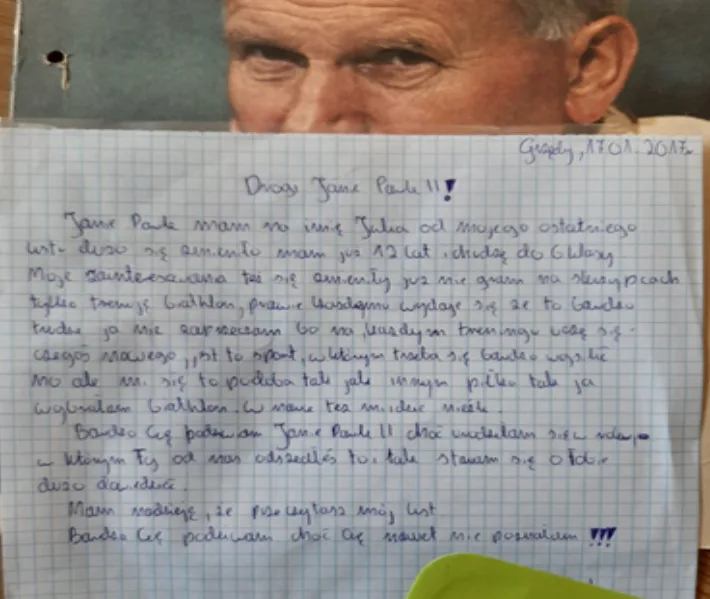 Grądy, 17.01.2017r
Drogi Janie Pawle II!
Janie Pawle mam na imię Julia od mojego ostatniego
listu dużo się zmieniło mam już 12 lat i chodzę do 6 klasy
Moje zainteresowania też się zmieniły już nie gram na skrzypcach
tylko trenuję biathlon, prawie każdemu wydaje się że to bardzo
trudne ja nie zaprzeczam bo na każdym treningu uczę się
czegoś nowego, jest to sport, w którym trzeba się bardzo wysilić
no ale mi się to podoba tak jak innym piłka tak ja
wybrałam biathlon. W nauce też mi idzie nieźle.
Bardzo Cię podziwiam Janie Pawle II choć urodziłam się w
w którym Ty od nas odszedłeś to i tak staram się o Tobie
dużo dowiedzieć.
Mam nadzieję, że przeczytasz mój list
Bardzo Cię podziwiam choć Cię nawet nie poznałam !!!